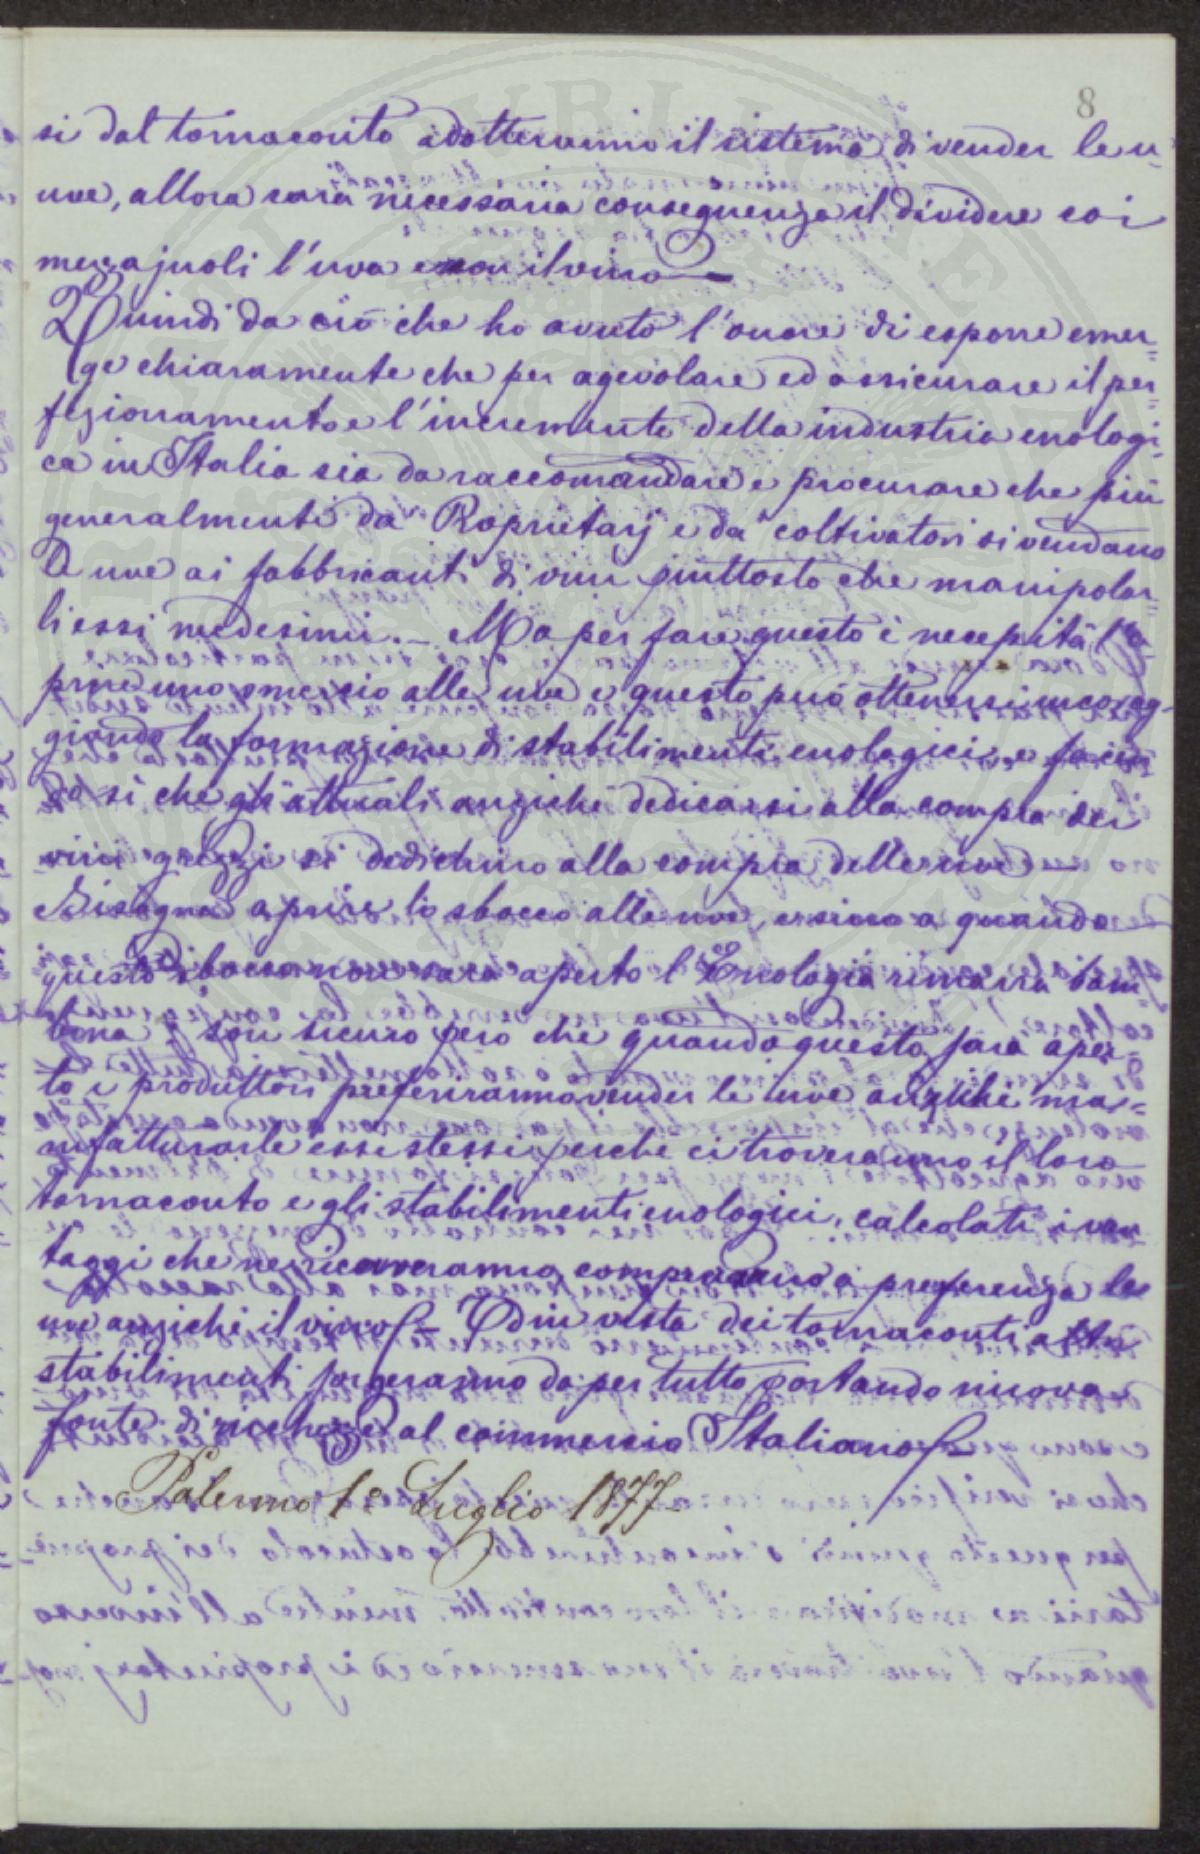 8
si dal tornaconto adotteranno il sistema di vender le u-
uve, allora sarà necessaria conseguenza il dividere coi
mezzajuoli l'uva e non il vino —
Quindi da ciò che ho avuto l'onore di esporre emer=
ge chiaramente che per agevolare ed assicurare il per=
fezionamento e l'incremento della industria enologi=
ca in Italia sia da raccomandare e procurare che più
generalmente da Proprietarj e da coltivatori si vendano
le uve ai fabbricanti di vini piuttosto che manipolar=
li essi medesimi. — Ma per fare questo è necessità l'a=
prire uno smercio alle uve e questo può ottenersi incorag-
giando la formazione di stabilimenti enologici, e facen
do sì che gli attuali anzichè dedicarsi alla compra dei
vini grezzi si dedichino alla compra delle uve —
Bisogna aprire lo sbocco alle uve, e sino a quando
questo sbocco non sarà aperto l'Enologia rimarrà bam
bina; son sicuro però che quando questo sarà aper=
to i produttori preferiranno vender le uve anzichè ma=
nifatturarle essi stessi perchè ci troveranno il loro
tornaconto e gli stabilimenti enologici, calcolati i van
taggi che ne ricaveranno, compreranno a preferenza le
uve anzichè il vino — Ed in vista dei tornaconti altri
stabilimenti sorgeranno da per tutto portando nuova
fonte di ricchezza al commercio Italiano —
Palermo 1° Luglio 1877